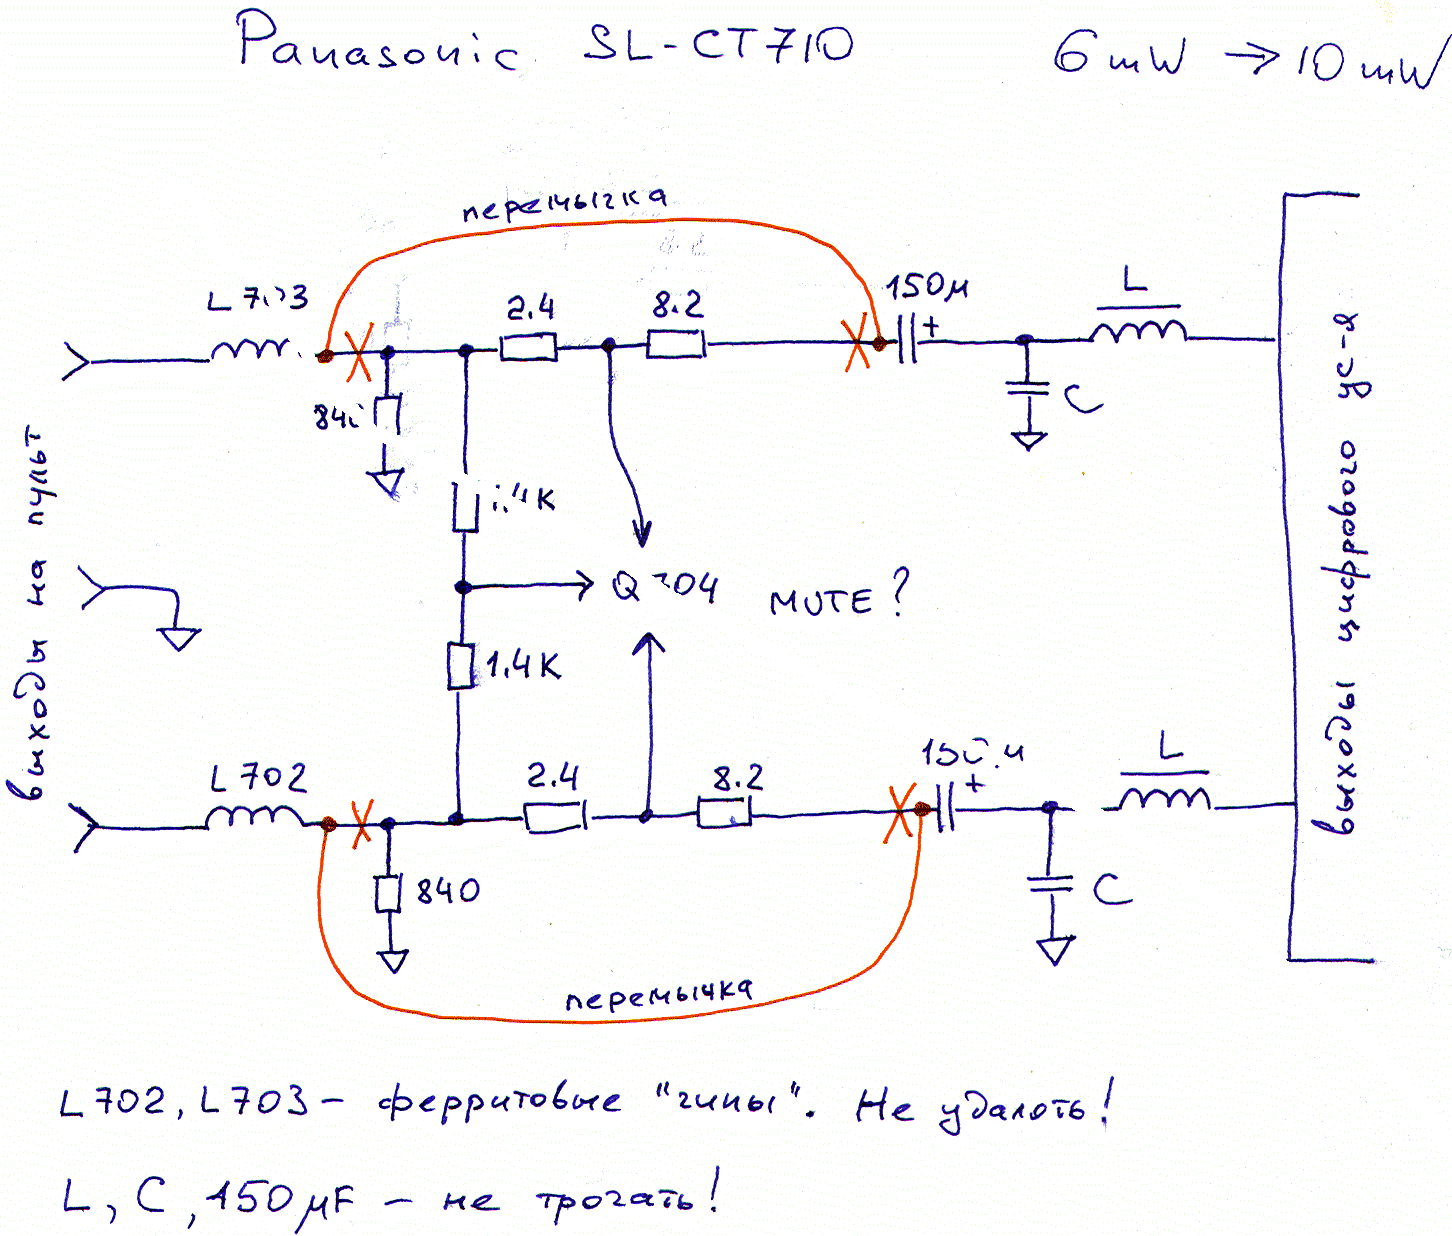 Panasonic SL-CT710 6mW → 10mW
перемычка
L 703
2.4
8.2
150μ
+
L
C
1.4K
Q 704
MUTE ?
1.4K
выходы на пульт
выходы цифрового ус-я
L 702
2.4
8.2
+
L
840
C
перемычка
L702, L703 – ферритовые "чипы". Не удалять!
L, C, 150 μF – не трогать!